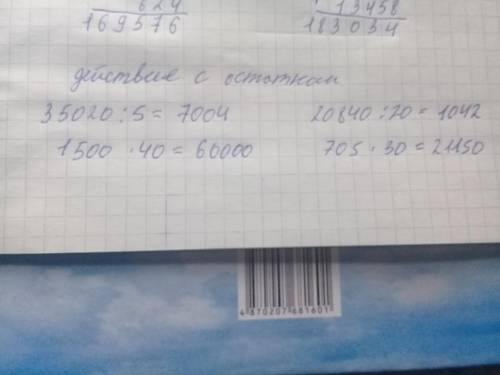 624 13458
169576 183034
действие с остатком
35020:5= 7004 20840:20= 1042
1500 ·40 = 60000 705 · 30 = 21150
4870207681601